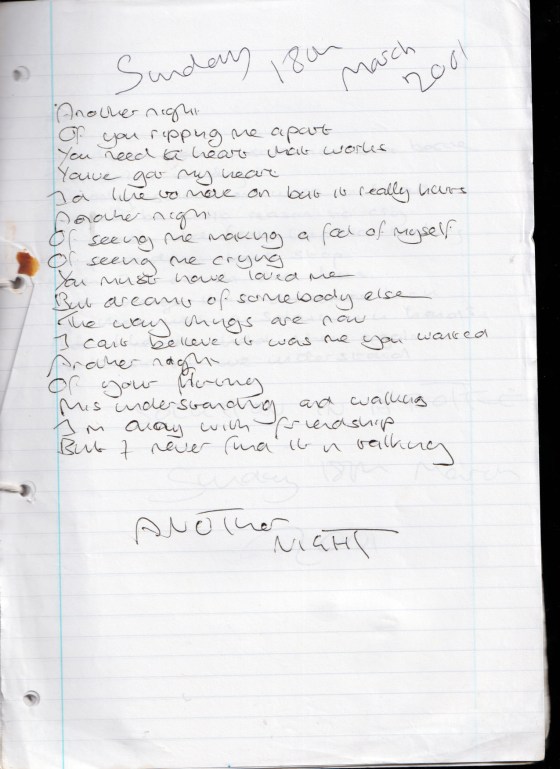 Sunday 18th March 2001
Another night
Of you ripping me apart
You need a heart that works
Youve got my heart
I'd like to move on but it really hurts
Another night
Of seeing me making a fool of myself
Of seeing me crying
You must have loved me
But dreamt of somebody else
The way things are now
I cant believe it was me you wanted
Another night
Of your flirting
Misunderstanding and walking
I'm okay with friendship
But I never find it in talking
ANOTHER
NIGHT